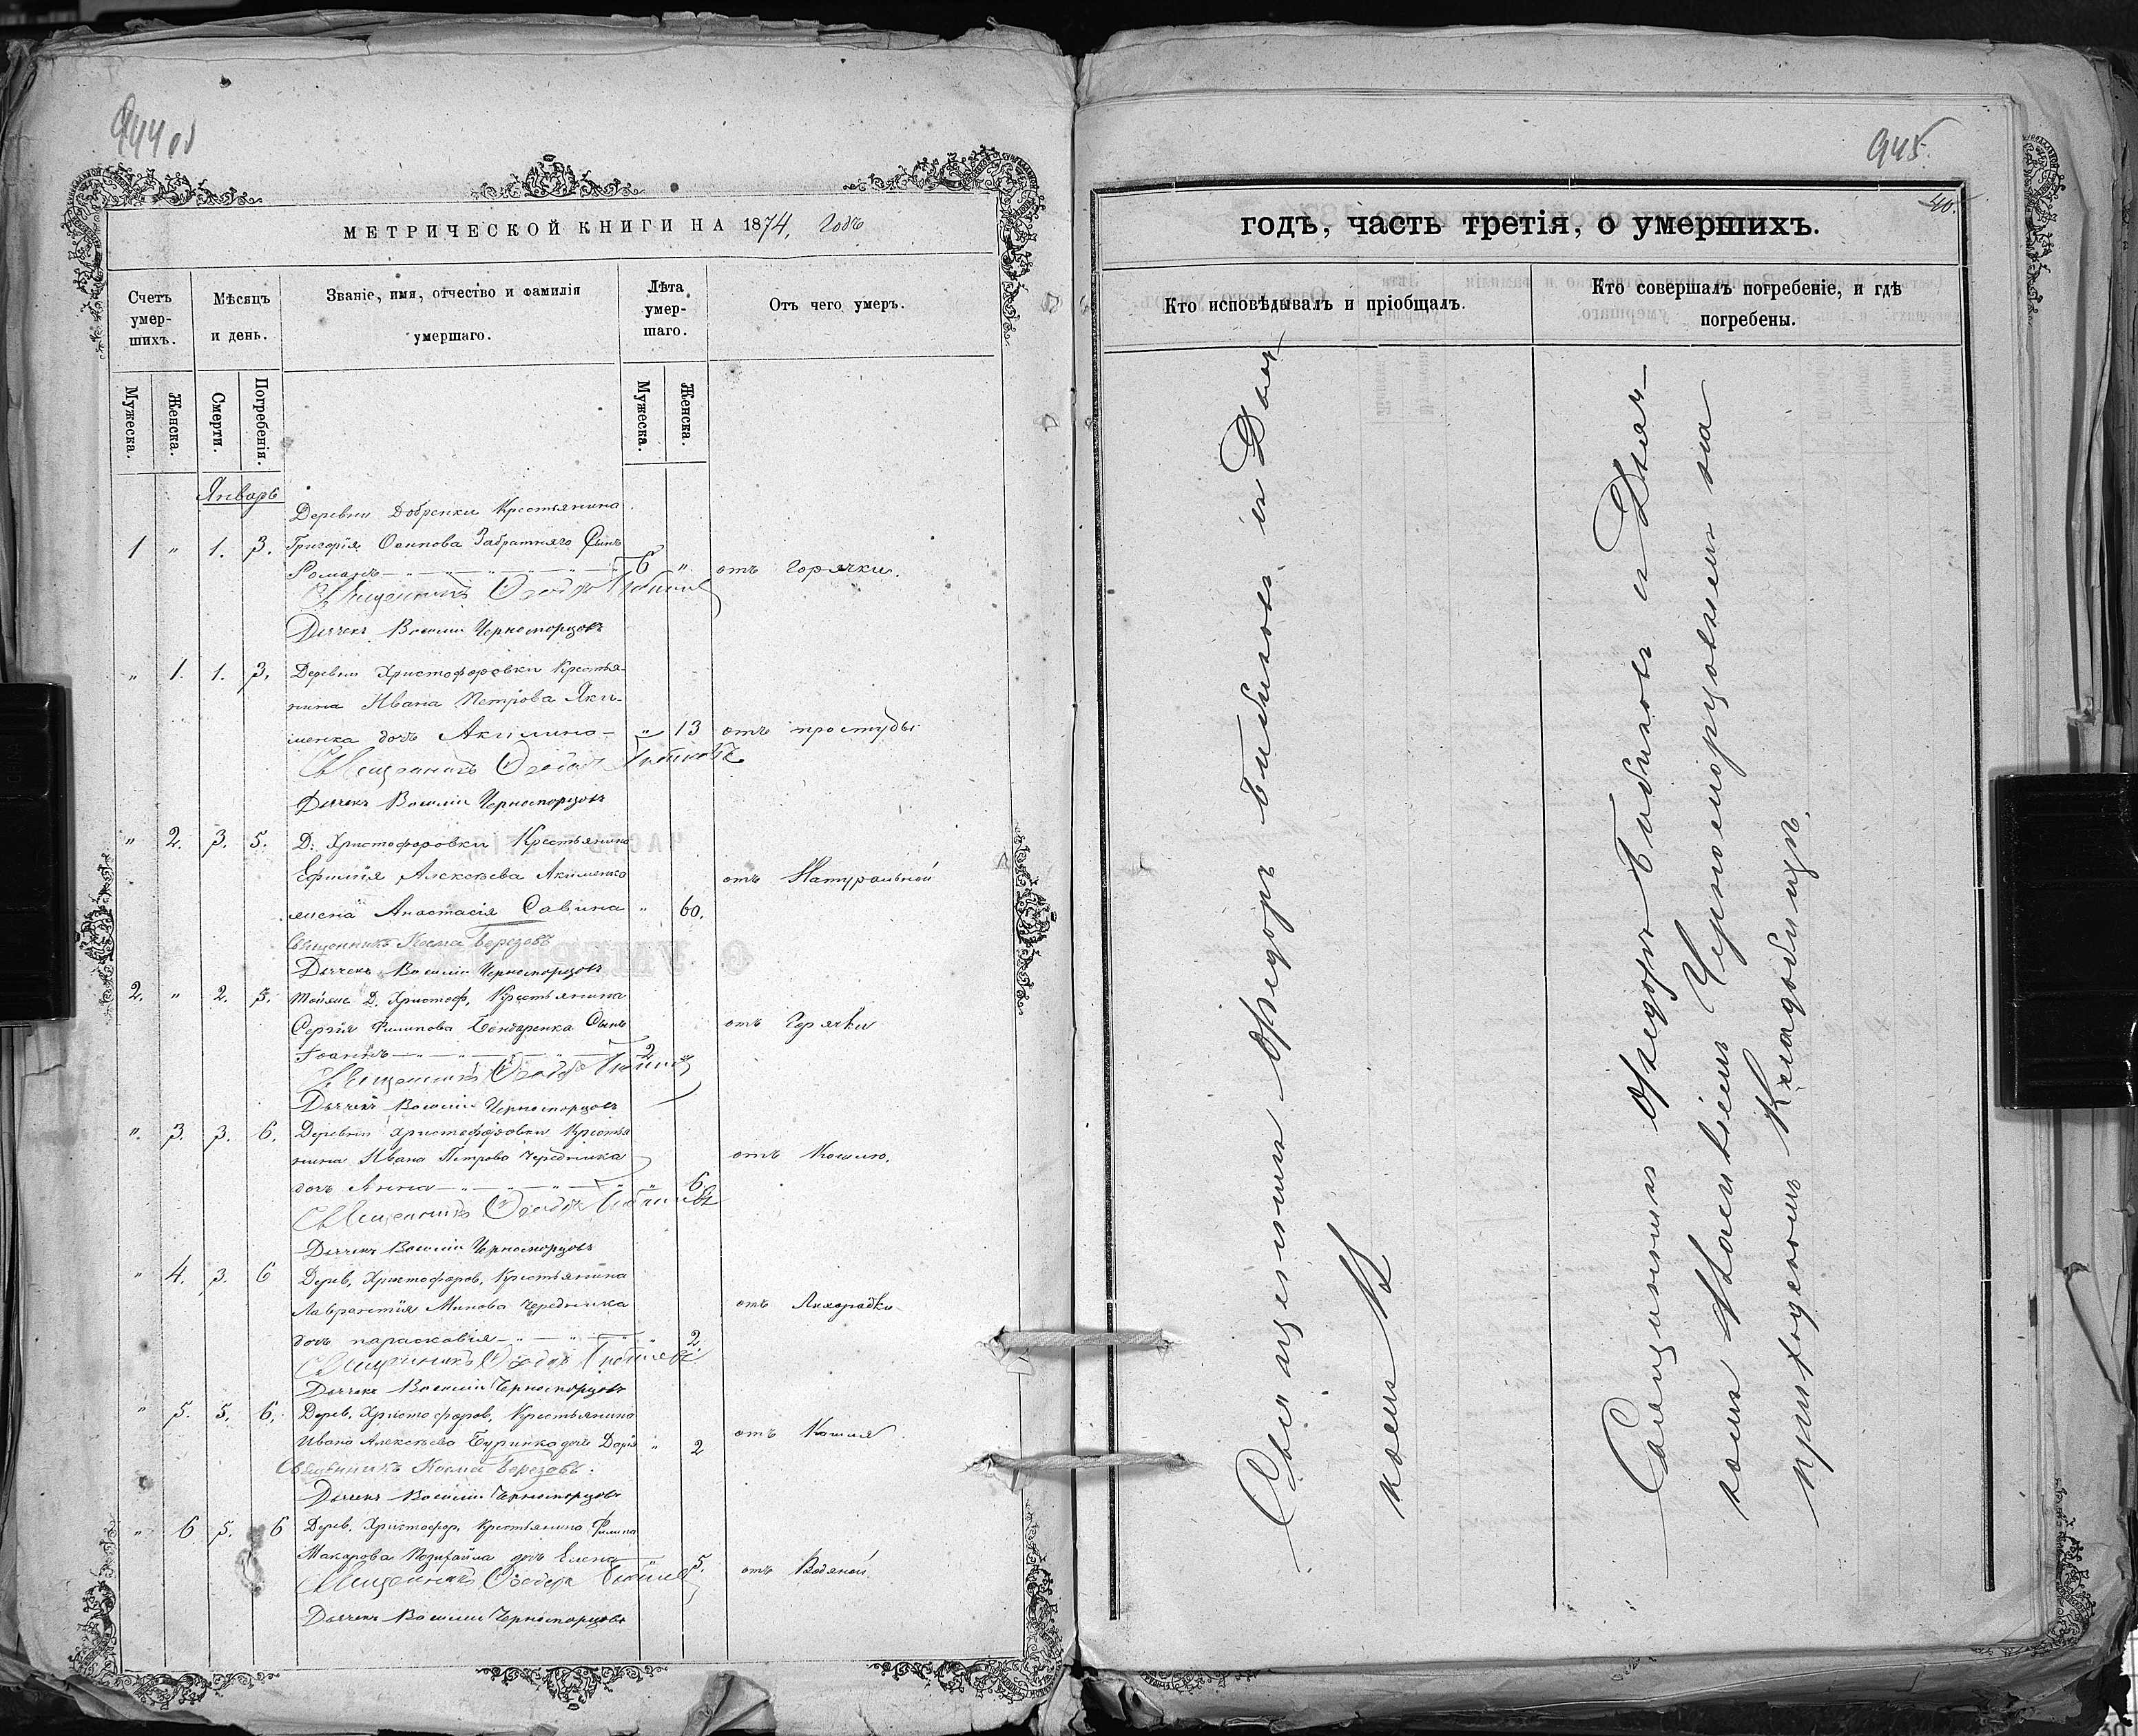 944 об
МЕТРИЧЕСКОЙ КНИГИ НА 1874, годъ
Счетъ умер-шихъ.
Мѣсяцъ и день.
Званіе, имя, отчество и фамилія умершаго.
Лѣта умер-шаго.
Отъ чего умеръ.
Мужеска.
Женска.
Смерти.
Погребенія.
Мужеска.
Женска.
Январь
Деревни Добренки Крестьянина
1 " 1. 3. Григорія Осипова Забратняго Сынъ
Романъ 6 " отъ горячки.
Священникъ Ѳеодоръ Бабиковъ
Дьячекъ Василій Черноморцовъ
" 1. 1. 3. Деревни Христофоровки Крестья-
нина Ивана Петрова Яки-
менка дочь Акилина " 13 отъ простуды
Священникъ Ѳеодоръ Бабиковъ
Дьячекъ Василій Черноморцовъ
" 2. 3. 5. Д. Христофоровки Крестьянина
Ефимія Алексѣева Акименка отъ Натуральной
жена Анастасія Савина " 60.
Священникъ Косма Березовъ
Дьячекъ Василій Черноморцовъ
2. " 2. 5. Тойже Д. Христоф. Крестьянина
Сергія Филипова Бондаренка Сынъ отъ Горячки
Іоаннъ 2 "
Священникъ Ѳеодоръ Бабиковъ
Дьячекъ Василій Черноморцовъ
". 3. 3. 6. Деревни Христофоровки Крестья
нина Ивана Петрова Чередника отъ Кашлю.
дочь Анна " 6.
Священникъ Ѳеодоръ Бабиковъ
Дьячекъ Василій Черноморцовъ
" 4. 3. 6 Дерев. Христофоров. Крестьянина
Лаврентія Минова Чередника отъ Лихорадки
дочь парасковія " 2.
Священникъ Ѳеодоръ Бабиковъ
Дьячекъ Василій Черноморцовъ
" 5. 5. 6. Дерев. Христофоров. Крестьянина
Ивана Алексѣева Буринка дочь Дарія " 2 отъ Кашля
Священникъ Косма Березовъ.
Дьячекъ Василій Черноморцовъ
" 6 5. 6 Дерев. Христофор. Крестьянина Филипа
Макарова дочь Елена " 5. отъ Водяной.
Священникъ Ѳеодоръ Бабиковъ
Дьячекъ Василій Черноморцовъ
945.
40.
годъ, часть третія, о умершихъ.
Кто исповѣдывалъ и пріобщалъ.
Кто совершалъ погребеніе, и гдѣ погребены.
Священникъ Ѳедоръ Бабиковъ съ Дьяч-
комъ
Священникъ Ѳедоръ Бабиковъ съ Дьяч-
комъ Черноморцовымъ на
приходскомъ Кладбищѣ.